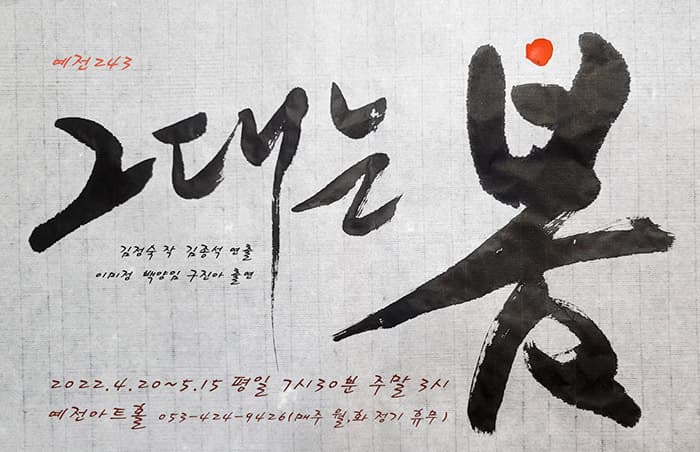 예전243
그대는 봄
김정숙 작 김종석 연출
이미정 백양임 구진아 출연
2022.4.20~5.15 평일 7시30분 주말 3시
예전아트홀 053-424-9426(매주 월,화 정기 휴무)